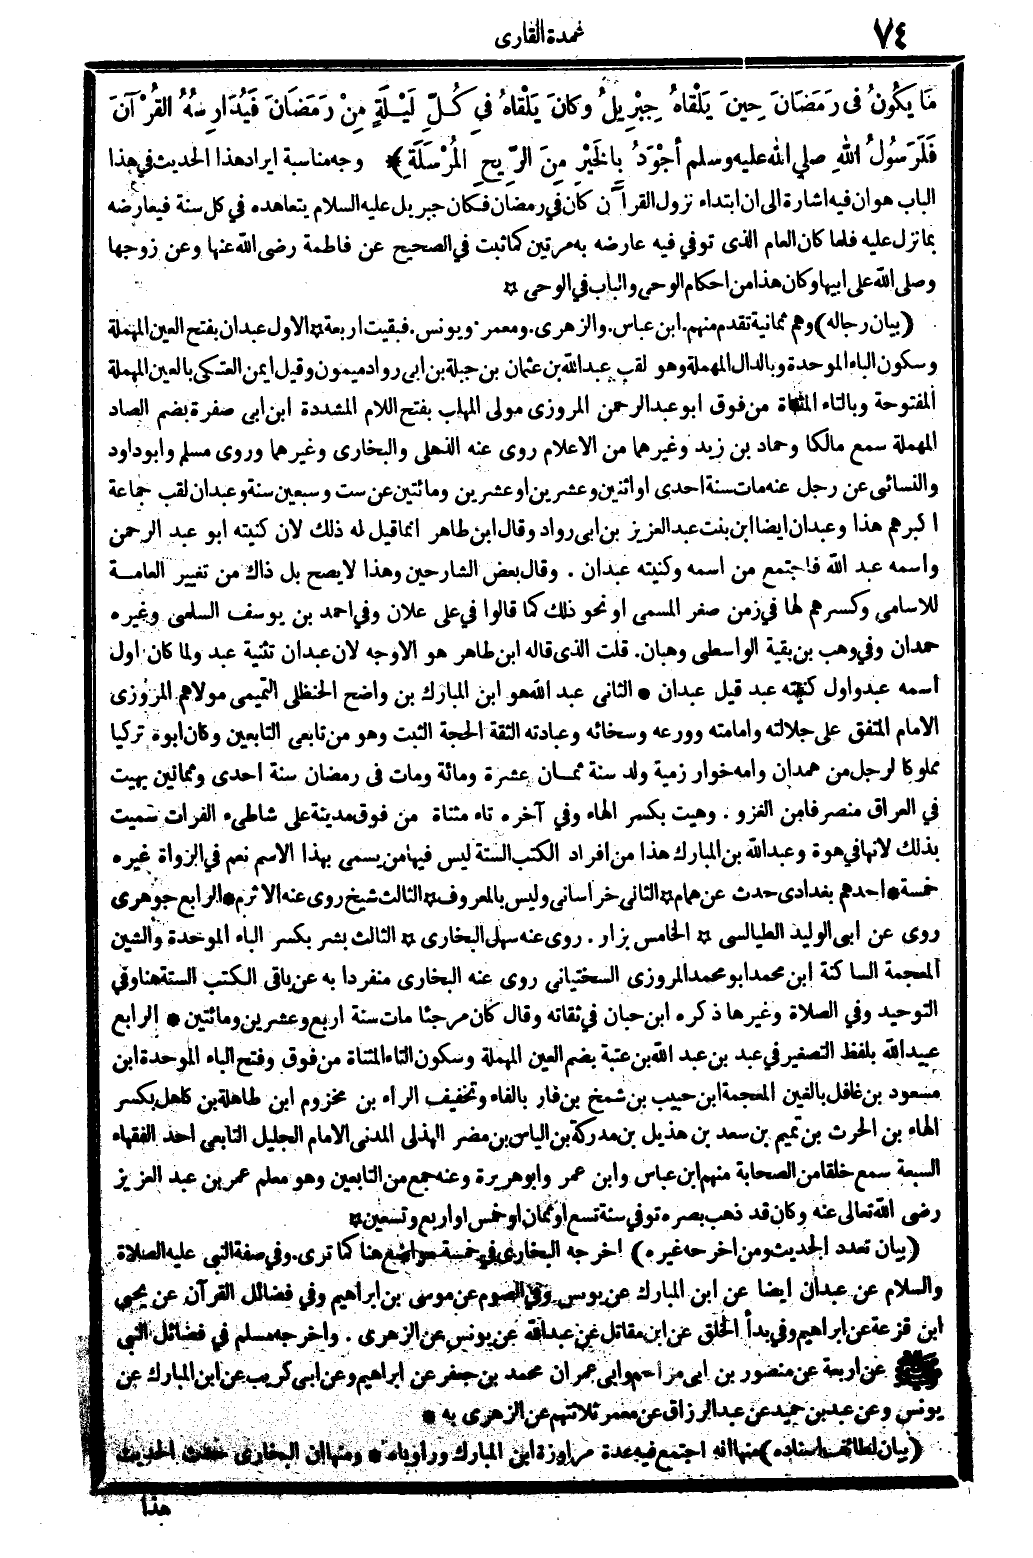 ٧٤
عمدة القارى
مَا يَكُونُ فى رَمَضَانَ حِينَ يَلْقَاهُ جِبْرِيلُ وكانَ يَلْقاهُ فِي كُلِّ لَيْلَةٍ مِنْ رَمَضَانَ فَيُدَارِسُهُ القُرْآنَ
فَلَرَسُولُ اللهِ صلي الله عليه وسلم أجْوَدُ بالخَيْرِ مِنَ الرِّيحِ المُرْسَلَةِ ) وجه مناسبة ايراد هذا الحديث في هذا
الباب هو ان فيه اشارة الى ان ابتداء نزول القرآن كان في رمضان فكان جبريل عليه السلام يتعاهده في كل سنة فيعارضه
بما نزل عليه فلما كان العام الذى توفي فيه عارضه به مرتين كما ثبت في الصحيح عن فاطمة رضى الله عنها وعن زوجها
وصلى الله على ابيها وكان هذا من احكام الوحى والباب في الوحى ✡
(بيان رجاله) وهم ثمانية تقدم منهم . ابن عباس . والزهرى . ومعمر . ويونس . فبقيت اربعة ✡ الاول عبدان بفتح العين المهملة
وسكون الباء الموحدة وبالدال المهملة وهو لقب عبد الله بن عثمان بن جبلة بن ابى رواد ميمون وقيل ايمن العتكى بالعين المهملة
المفتوحة وبالتاء المثناة من فوق ابو عبد الرحمن المروزى مولى المهلب بفتح اللام المشددة ابن ابى صفرة بضم الصاد
المهملة سمع مالكا وحماد بن زيد وغيرهما من الاعلام روى عنه الذهلى والبخارى وغيرهما وروى مسلم وابو داود
والنسائى عن رجل عنه مات سنة احدى او اثنين وعشرين او عشرين ومائتين عن ست وسبعين سنة وعبدان لقب جماعة
اكبرهم هذا وعبدان ايضا ابن بنت عبد العزيز بن ابى رواد وقال ابن طاهر انما قيل له ذلك لان كنيته ابو عبد الرحمن
واسمه عبد الله فاجتمع من اسمه وكنيته عبدان . وقال بعض الشارحين وهذا لا يصح بل ذاك من تغيير العامة
للاسامى وكسرهم لها في زمن صغر المسمى او نحو ذلك كما قالوا في على علان وفي احمد بن يوسف السلمى وغيره
حمدان وفي وهب بن بقية الواسطى وهبان . قلت الذى قاله ابن طاهر هو الاوجه لان عبدان تثنية عبد ولما كان اول
اسمه عبد واول كنيته عبد قيل عبدان * الثانى عبد الله هو ابن المبارك بن واضح الحنظلى التميمى مولاهم المروزى
الامام المتفق على جلالته وامامته وورعه وسخائه وعبادته الثقة الحجة الثبت وهو من تابعى التابعين وكان ابوه تركيا
مملوكا لرجل من همدان وامه خوارزمية ولد سنة ثمان عشرة ومائة ومات فى رمضان سنة احدى وثمانين بهيت
في العراق منصرفا من الغزو . وهيت بكسر الهاء وفي آخره تاء مثناة من فوق مدينة على شاطىء الفرات سميت
بذلك لانها في هوة وعبد الله بن المبارك هذا من افراد الكتب الستة ليس فيها من يسمى بهذا الاسم نعم في الرواة غيره
خمسة * احدهم بغدادى حدث عن همام ✡ الثانى خراسانى وليس بالمعروف ✡ الثالث شيخ روى عنه الاثرم * الرابع جوهرى
روى عن ابى الوليد الطيالسى ✡ الخامس بزار . روى عنه سهل البخارى ✡ الثالث بشر بكسر الباء الموحدة والشين
المعجمة الساكنة ابن محمد ابو محمد المروزى السختيانى روى عنه البخارى منفردا به عن باقى الكتب الستة هنا وفي
التوحيد وفي الصلاة وغيرها ذكره ابن حبان في ثقاته وقال كان مرجئا مات سنة اربع وعشرين ومائتين * الرابع
عبيد الله بلفظ التصغير في عبد بن عبد الله بن عتبة بضم العين المهملة وسكون التاء المثناة من فوق وفتح الباء الموحدة ابن
مسعود بن غافل بالغين المعجمة ابن حبيب بن شمخ بن فار بالفاء وتخفيف الراء بن مخزوم ابن طاهلة بن كاهل بكسر
الهاء بن الحرث بن تميم بن سعد بن هذيل بن مدركة بن الياس بن مضر الهذلى المدنى الامام الجليل التابعى احد الفقهاء
السبعة سمع خلقا من الصحابة منهم ابن عباس وابن عمر وابو هريرة وعنه جمع من التابعين وهو معلم عمر بن عبد العزيز
رضى الله تعالى عنه وكان قد ذهب بصره توفي سنة تسع او ثمان او خمس او اربع وتسعين ✡
(بيان تعدد الحديث ومن اخرجه غيره) اخرجه البخارى في خمسة مواضع هنا كما ترى . وفى صفة النبى عليه الصلاة
والسلام عن عبدان ايضا عن ابن المبارك عن يونس وفي الصوم عن موسى بن ابراهيم وفي فضائل القرآن عن يحيى
ابن قزعة عن ابراهيم وفي بدأ الخلق عن ابن مقاتل عن عبد الله عن يونس عن الزهرى . واخرجه مسلم في فضائل النبى
عن اربعة عن منصور بن ابى مزاحم وابى عمران محمد بن جعفر عن ابراهيم وعن ابى كريب عن ابن المبارك عن
يونس وعن عبد بن حميد عن عبد الرزاق عن معمر ثلاثتهم عن الزهرى به *
(بيان لطائف اسناده) منها انه اجتمع فيه عدة مراوزة ابن المبارك وراوياه * ومنها ان البخارى حدث الحديث
هذا